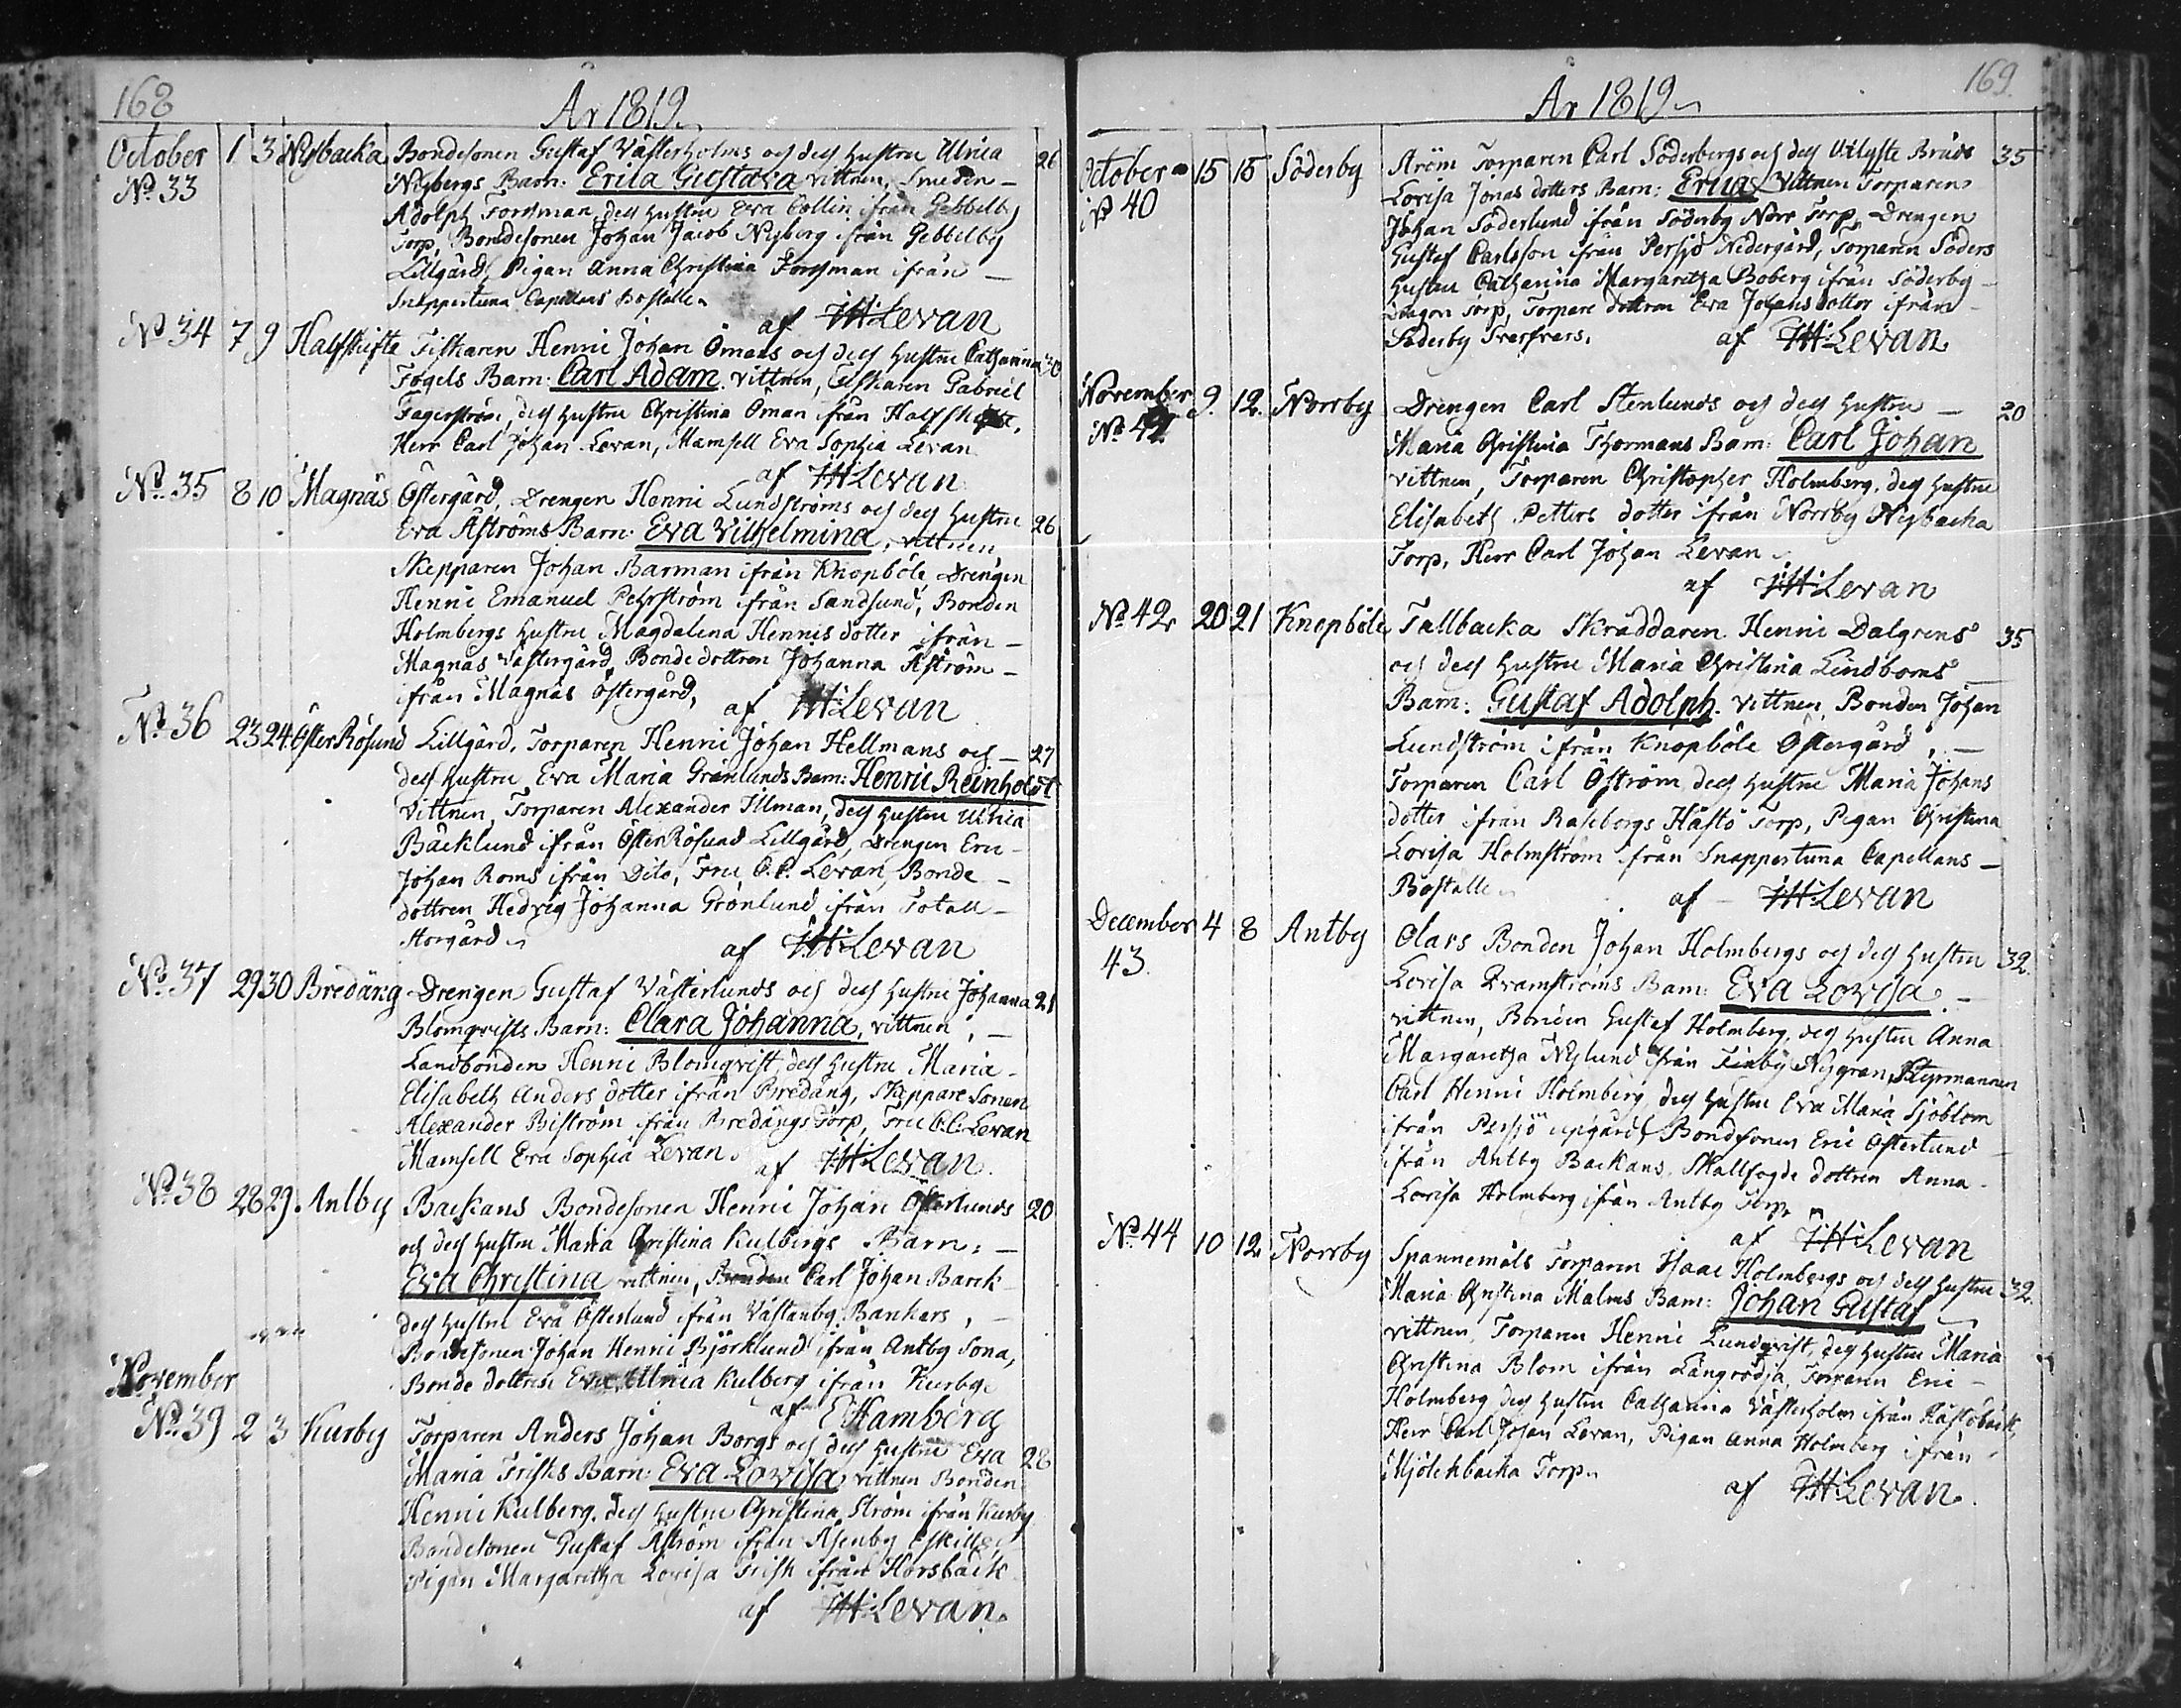 168
År 1819
October 1 3 Nybacka Bondesonen Gustaf Västerholms och dess hustru Ulrica 26
No 33 Nybergs Barn: Erica Gustava vittnen, Smeden
Adolph Forsman, dess hustru Eva Collin ifrån Gebbelby
Torp, Bondesonen Johan Jacob Nyberg ifrån Gebbelby
Lillgård, Pigan Anna Christina Forsman ifrån
Snappertuna Capellans Boställe
af IH Levan
No 34 7 9 Halfskifte Fiskaren Henric Johan Ömans och dess hustru Catharina 30
Fogels Barn: Carl Adam. vittnen, Fiskaren Gabriel
Fagerström, dess hustru Christina Öman ifrån Halfskifte,
Herr Carl Johan Levan, Mamsell Eva Sophia Levan
af IH Levan
No 35 8 10 Magnäs Östergård, Drengen Henric Lundströms och dess hustru
Eva Åströms Barn: Eva Vilhelmina, vittnen, 26
Skepparen Johan Barman ifrån Knopböle, Drengen
Henric Emanuel Pehrström ifrån Sandsund, Bonden
Holmbergs hustru Magdalena Henrics dotter ifrån
Magnäs Västergård, Bondedottren Johanna Åström
ifrån Magnäs Östergård,
af IH Levan
No 36 23 24 ÖsterRösund Lillgård, Torparen Henric Johan Hellmans och 27
dess hustru Eva Maria Grönlunds Barn: Henric Reinholdt
vittnen, Torparen Alexander Illman, dess hustru Ulrica
Bäcklund ifrån ÖsterRösund Lillgård, Drengen Eric
Johan Roms ifrån Dito, Fru C.C. Levan, Bonde
dottren Hedvig Johanna Grönlund ifrån Totall
Storgård
af IH Levan
No 37 29 30 Bredäng Drengen Gustaf Västerlunds och dess hustru Johanna 21
Blomqvists Barn: Clara Johanna, vittnen,
Landbonden Henric Blomqvist, dess hustru Maria
Elisabeth Anders dotter ifrån Bredäng, Skeppare Sonen
Alexander Biström ifrån Bredängs Torp, Fru C.C. Levan
Mamsell Eva Sophia Levan.
af IH Levan.
No 38 28 29. Antby Backans Bondesonen Henric Johan Österlunds 20
och dess hustru Maria Christina Kulbergs Barn:
Eva Christina vittnen, Bonden Carl Johan Barck
dess hustru Eva Österlund ifrån Västanby Bankars,
Bondesonen Johan Henric Björklund ifrån Antby Sona,
Bonde dottren Eva Ulrica Kulberg ifrån Kurby
af E Hamberg
November
No 39 2 3 Kurby Torparen Anders Johan Borgs och dess hustru Eva 28
Maria Frisks Barn: Eva Lovisa vittnen Bonden
Henric Kulberg, dess hustru Christina Ström ifrån Kurby
Bondesonen Gustaf Åström ifrån Åsenby Eskills,
Pigan Margaretha Lovisa Frisk ifrån Horsback
af IH Levan.
169.
År 1819
October 15 15 Söderby Ström Torparen Carl Söderbergs och dess Vilgste Bruds 35
No 40 Lovisa Jonas dotters Barn: Erica. Vittnen Torparen
Johan Söderlund ifrån Söderby Norr Torp, Drengen
Gustaf Carlsson ifrån Persjö Nedergård, Torparen Söders
hustru Catharina Margaretha Boberg ifrån Söderby
Torp, Torpare dottren Eva Johans dotter ifrån
Söderby
af IH Levan
November 9. 12. Norrby Drengen Carl Stenlunds och dess hustru 20
No 41 Maria Christina Thormans Barn: Carl Johan
vittnen, Torparen Christopher Holmberg, dess hustru
Elisabeth Petters dotter ifrån Norrby Nybacka
Torp, Herr Carl Johan Levan
af IH Levan
No 42 20 21 Knopböle Tallbacka Skräddaren Henric Dalgrens 35
och dess hustru Maria Christina Lindboms
Barn: Gustaf Adolph. vittnen, Bonden Johan
Lundström ifrån Knopböle Östergård,
Torparen Carl Öström dess hustru Maria Johans
dotter ifrån Raseborgs Hästö Torp, Pigan Christina
Lovisa Holmström ifrån Snappertuna Capellans
Boställe
af IH Levan
December 4 8 Antby Olars Bonden Johan Holmbergs och dess hustru 32.
43. Lovisa Qvarnströms Barn: Eva Lovisa.
vittnen, Bonden Gustaf Holmberg, dess hustru Anna
Margaretha Nylund ifrån Finby Nygran, Styrmannen
Carl Henric Holmberg, dess hustru Eva Maria Sjöblom
ifrån Persjö upgård, Bondesonen Eric Österlund
ifrån Antby Backans, Skallfogde dottren Anna
Lovisa Holmberg ifrån Antby Torp
af IH Levan
No 44 10 12 Norrby Spannemåls Torparen Isaac Holmbergs och dess hustru 32.
Maria Christina Malms Barn: Johan Gustaf
vittnen, Torparen Henric Lundqvist, dess hustru Maria
Christina Blom ifrån Långrödja, Torparen Eric
Holmberg dess hustru Catharina Västerholm ifrån Hästöback,
Herr Carl Johan Levan, Pigan Anna Holmberg ifrån
Mjölckbacka Torp.
af IH Levan.